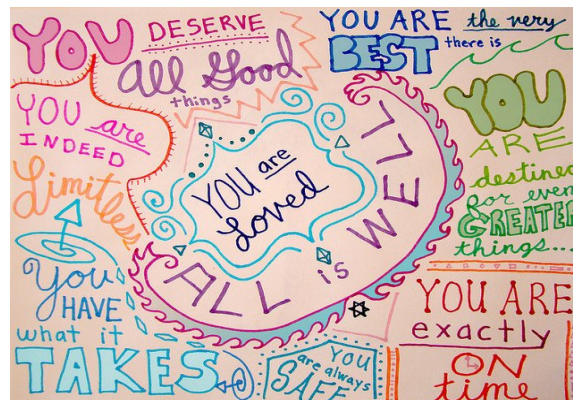 YOU DESERVE
All Good
things
YOU ARE the very
BEST there is
YOU are
INDEED
Limitless
YOU are
Loved
ALL is WELL
YOU
ARE
destined
for even
GREATER
things...
You
HAVE
what it
TAKES
YOU
are always
SAFE
YOU ARE
exactly
ON
time